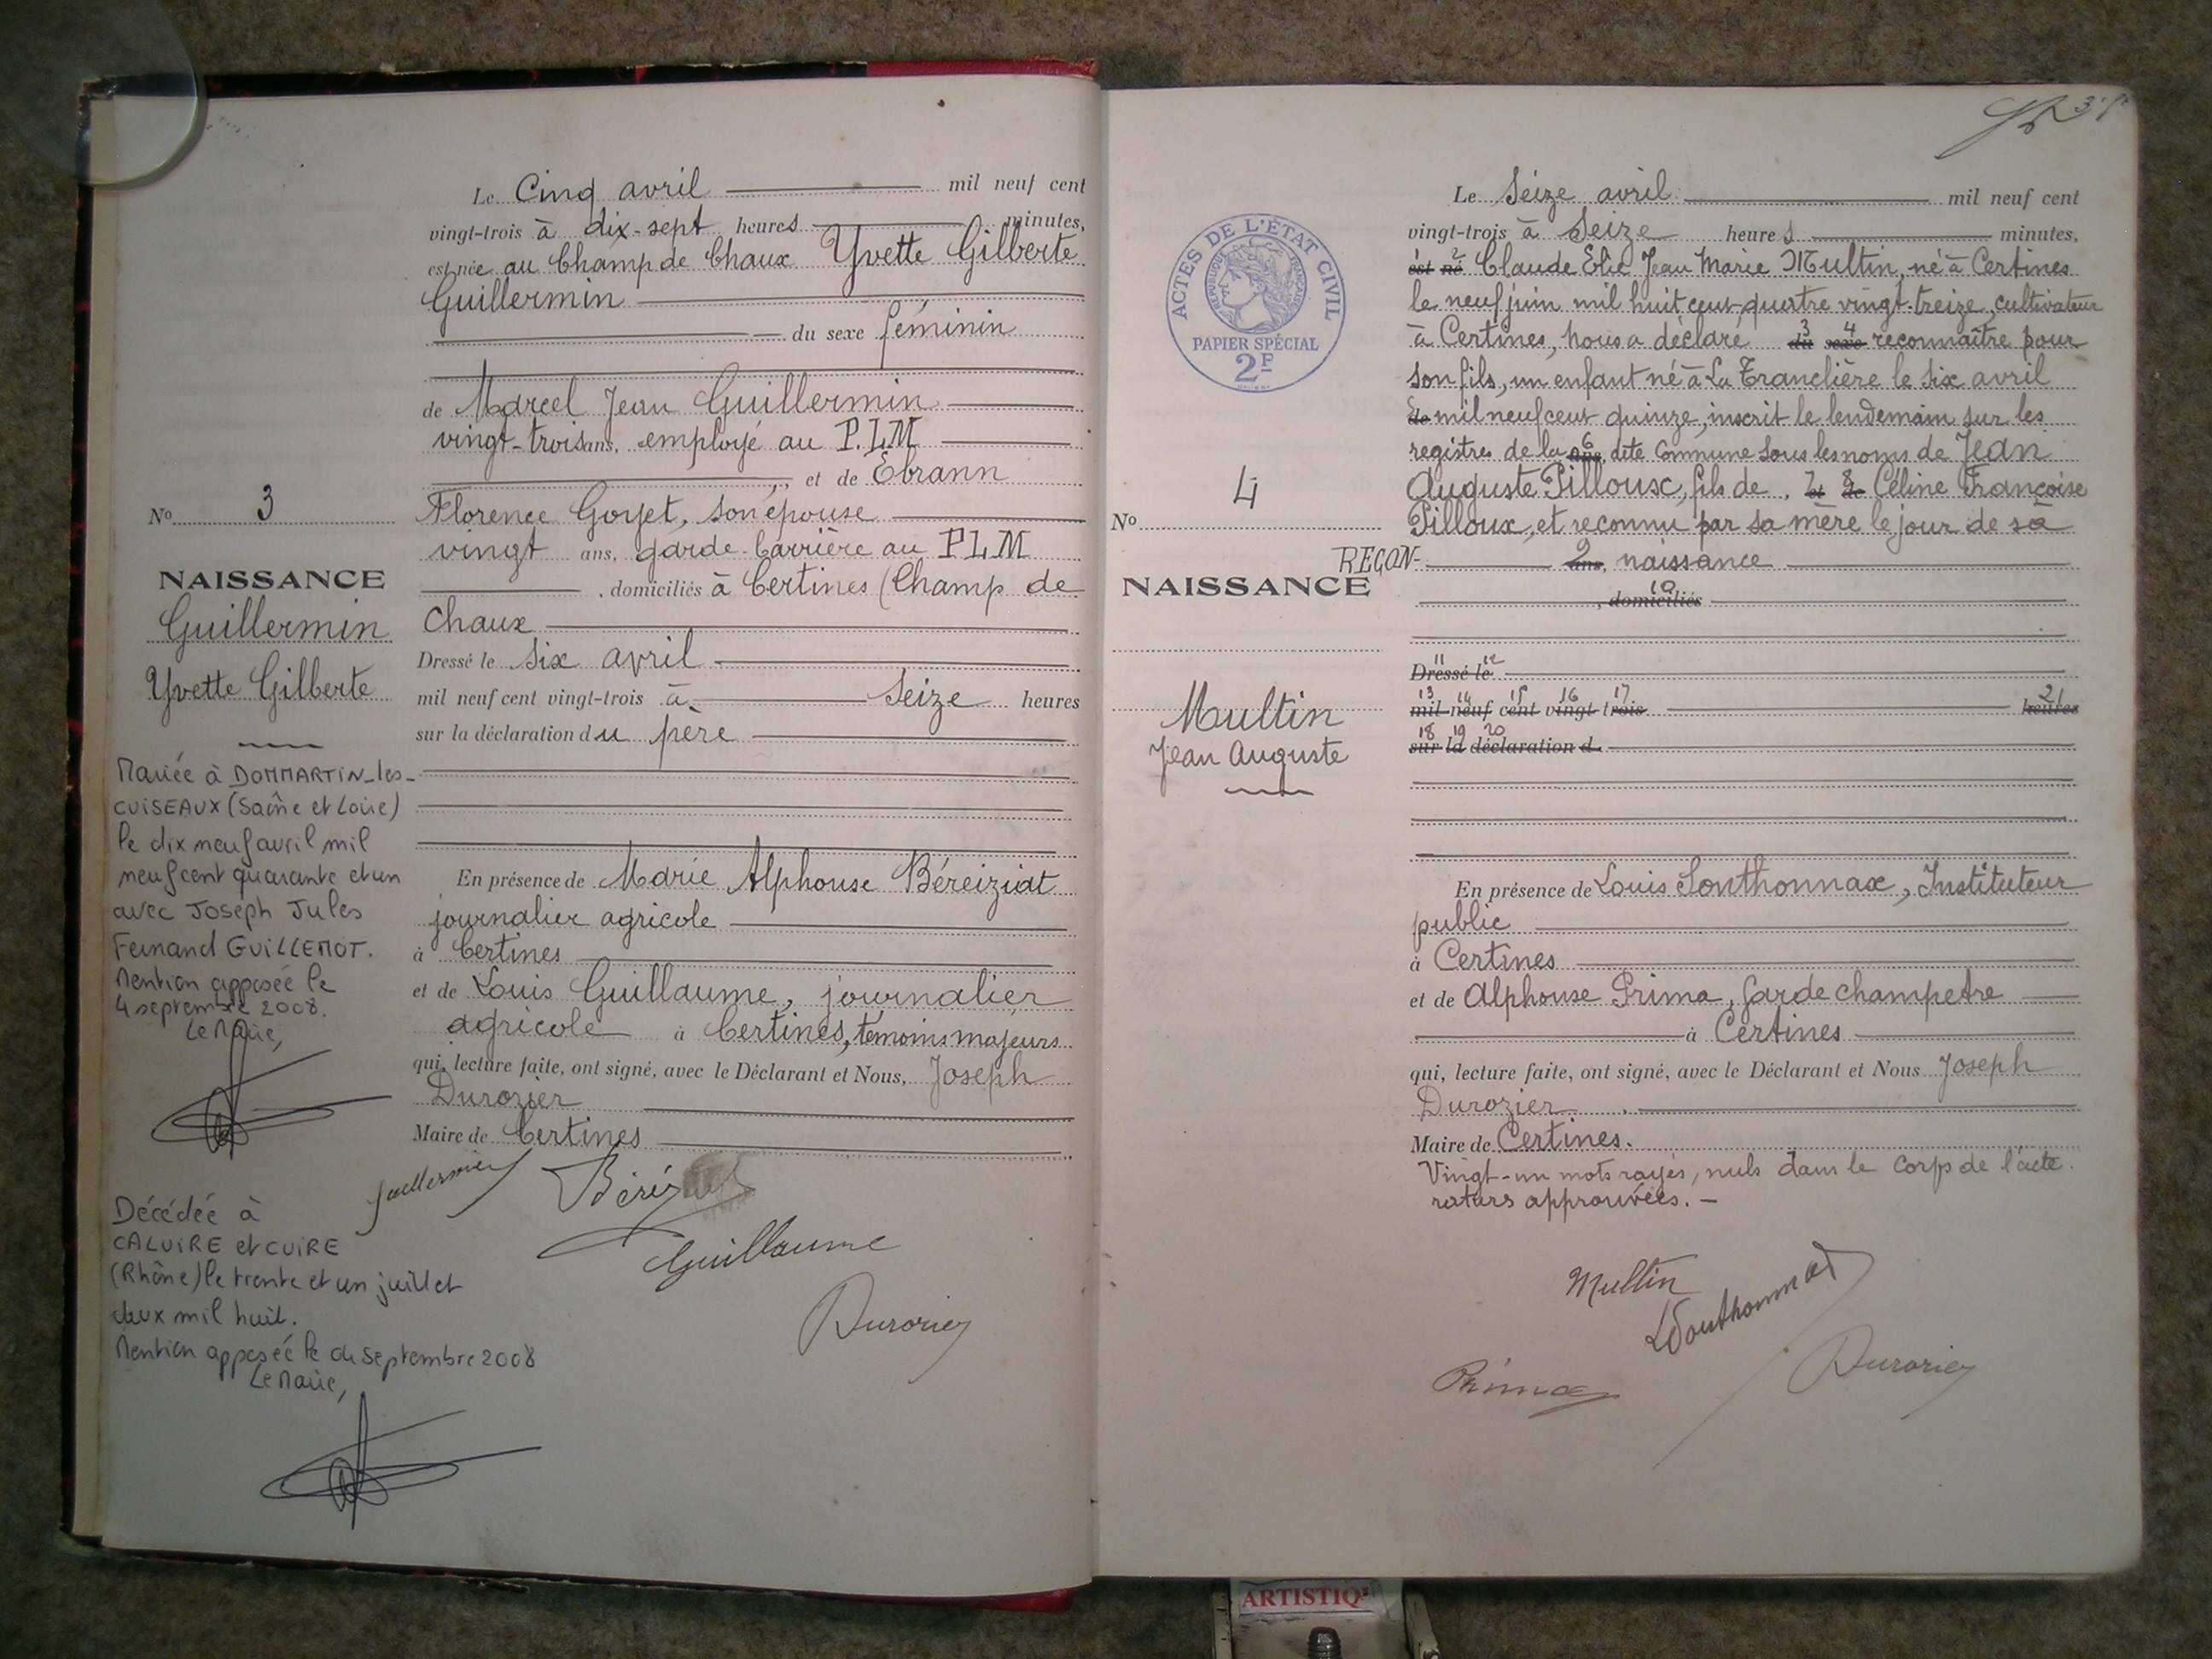 Le Cinq avril mil neuf cent
vingt-trois à dix-sept heures minutes,
est née au Champ de Chaux Yvette Gilberte
Guillermin
du sexe féminin
de Marcel Jean Guillermin
vingt-trois ans, employé au P.L.M
et de Ebrann
Florence Goyet, son épouse
vingt ans, garde-barrière au PLM
, domiciliés à Certines (Champ de
Chaux
Dressé le Six avril
mil neuf cent vingt-trois à Seize heures
sur la déclaration du père
En présence de Marie Alphonse Béreiziat
journalier agricole
à Certines
et de Louis Guillaume, journalier
agricole à Certines, témoins majeurs
qui, lecture faite, ont signé, avec le Déclarant et Nous, Joseph
Durozier
Maire de Certines
Guillermin
Guillaume
Durozier
No 3
NAISSANCE
Guillermin
Yvette Gilberte
Mariée à DOMMARTIN-les-
CUISEAUX (Saône et Loire)
le dix neuf avril mil
neuf cent quarante et un
avec Joseph Jules
Fernand GUILLEMOT.
Mention apposée le
4 septembre 2008.
Le Maire,
Décédée à
CALUIRE et CUIRE
(Rhône) le trente et un juillet
deux mil huit.
Mention apposée le 04 septembre 2008
Le Maire,
ACTES DE L'ÉTAT CIVIL
RÉPUBLIQUE FRANÇAISE
PAPIER SPÉCIAL
2F
No 4
RECON-
NAISSANCE
Multin
Jean Auguste
Le Seize avril mil neuf cent
vingt-trois à Seize heures minutes,
est né 1 2 Claude Elie Jean Marie Multin, né à Certines
le neuf juin mil huit cent quatre vingt-treize, cultivateur
à Certines, nous a déclaré du sexe 3 4 reconnaître pour
son fils, un enfant né à La Tranclière le six avril
de mil neuf cent quinze, inscrit le lendemain sur les
registres de la ans 6 dite Commune sous les noms de Jean
Auguste Pilloux, fils de , et de 7 8 Céline Françoise
Pilloux, et reconnu par sa mère le jour de sa
ans, 9 naissance
, domiciliés 10
Dressé le 11 12
mil neuf cent vingt-trois 13 14 15 16 17 heures 21
sur la déclaration d 18 19 20
En présence de Louis Sonthonnax, Instituteur
public
à Certines
et de Alphonse Prima, garde champetre
à Certines
qui, lecture faite, ont signé, avec le Déclarant et Nous Joseph
Durozier
Maire de Certines.
Vingt-un mots rayés, nuls dans le corps de l'acte.
raturs approuvées. —
Multin
LSonthonnax
Prima
Durozier
ARTISTIQ